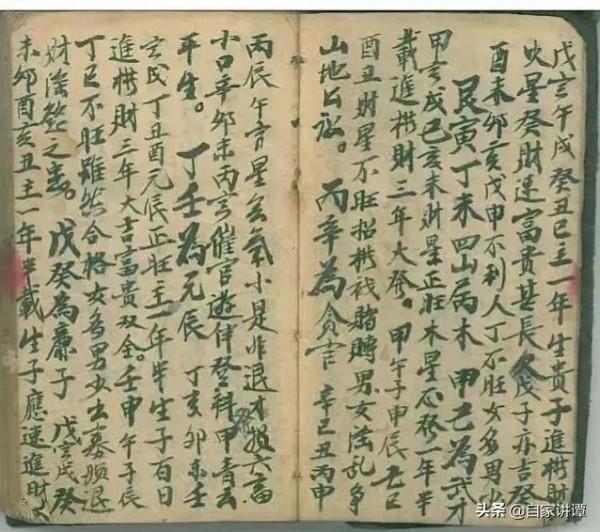 戊寅午戌癸丑巳主一年生貴子進横財
火星癸財速富貴甚長戊子亦吉癸
酉未卯亥戊申不利人丁不旺女多男少
艮寅丁未四山為木 甲己為武才
甲寅戌己亥未財星正旺木星發一年半
載進横財三年大發。甲午子申辰乙巳
酉丑財星不旺招横賭男女淫乱争
山地公訟。 丙辛為貪吉 辛巳丑丙申
丙辰午方星氣小是非退才損六畜
小口辛卯未丙寅催官遊伴登科甲青云
平生。 丁壬為元辰 丁亥卯未壬
寅戌丁丑酉元辰正旺主一年半生子百日
進横財三年大吉富貴双全。壬申午子辰
丁巳不旺雖然合格女多男少出寡婦退
財淫慾之患。戊癸為廉子 戊寅戌癸
未卯酉亥丑主一年半載生子應速進財
头条 @自家讲谭